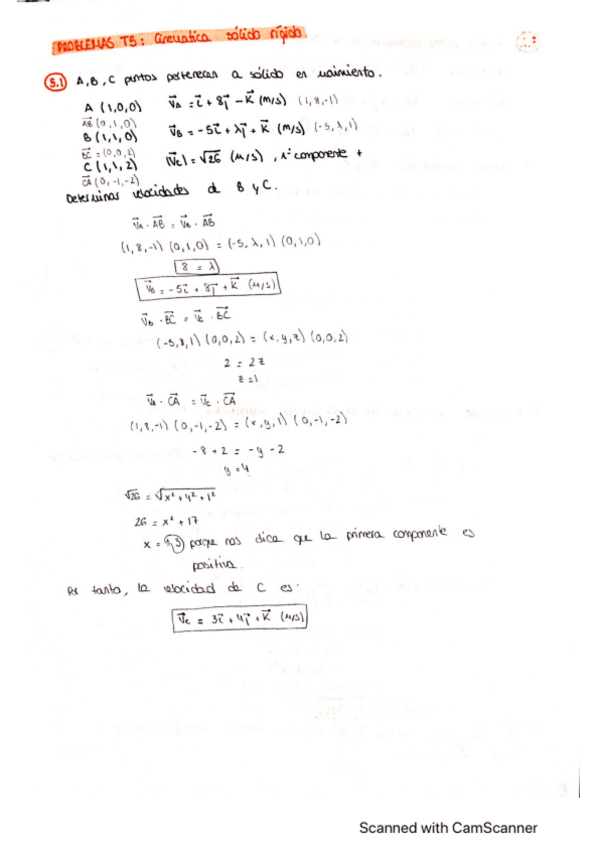 PROBLEMAS T5: Cinematica sólido rígido.
5.1 A, B, C puntos pertenecen a sólido en movimiento.
A (1,0,0) V⃗A = i⃗ + 8j⃗ - K⃗ (m/s) (1,8,-1)
AB⃗ (0,1,0)
B (1,1,0) V⃗B = -5i⃗ + λj⃗ + K⃗ (m/s) (-5,λ,1)
BC⃗ = (0,0,2)
C (1,1,2) |V⃗c| = √26 (m/s), 1ª componente +
CA⃗ (0,-1,-2)
Determinas velocidades de B y C.
V⃗A · AB⃗ = V⃗B · AB⃗
(1,8,-1) (0,1,0) = (-5,λ,1) (0,1,0)
8 = λ
V⃗B = -5i⃗ + 8j⃗ + K⃗ (m/s)
V⃗b · BC⃗ = V⃗c · BC⃗
(-5,8,1) (0,0,2) = (x,y,z) (0,0,2)
2 = 2z
z = 1
V⃗A · CA⃗ = V⃗c · CA⃗
(1,8,-1) (0,-1,-2) = (x,y,1) (0,-1,-2)
-8 + 2 = -y - 2
y = 4
√26 = √x² + 4² + 1²
26 = x² + 17
x = 3 porque nos dice que la primera componente es
positiva.
Por tanto, la velocidad de C es:
V⃗c = 3i⃗ + 4j⃗ + K⃗ (m/s)
Scanned with CamScanner